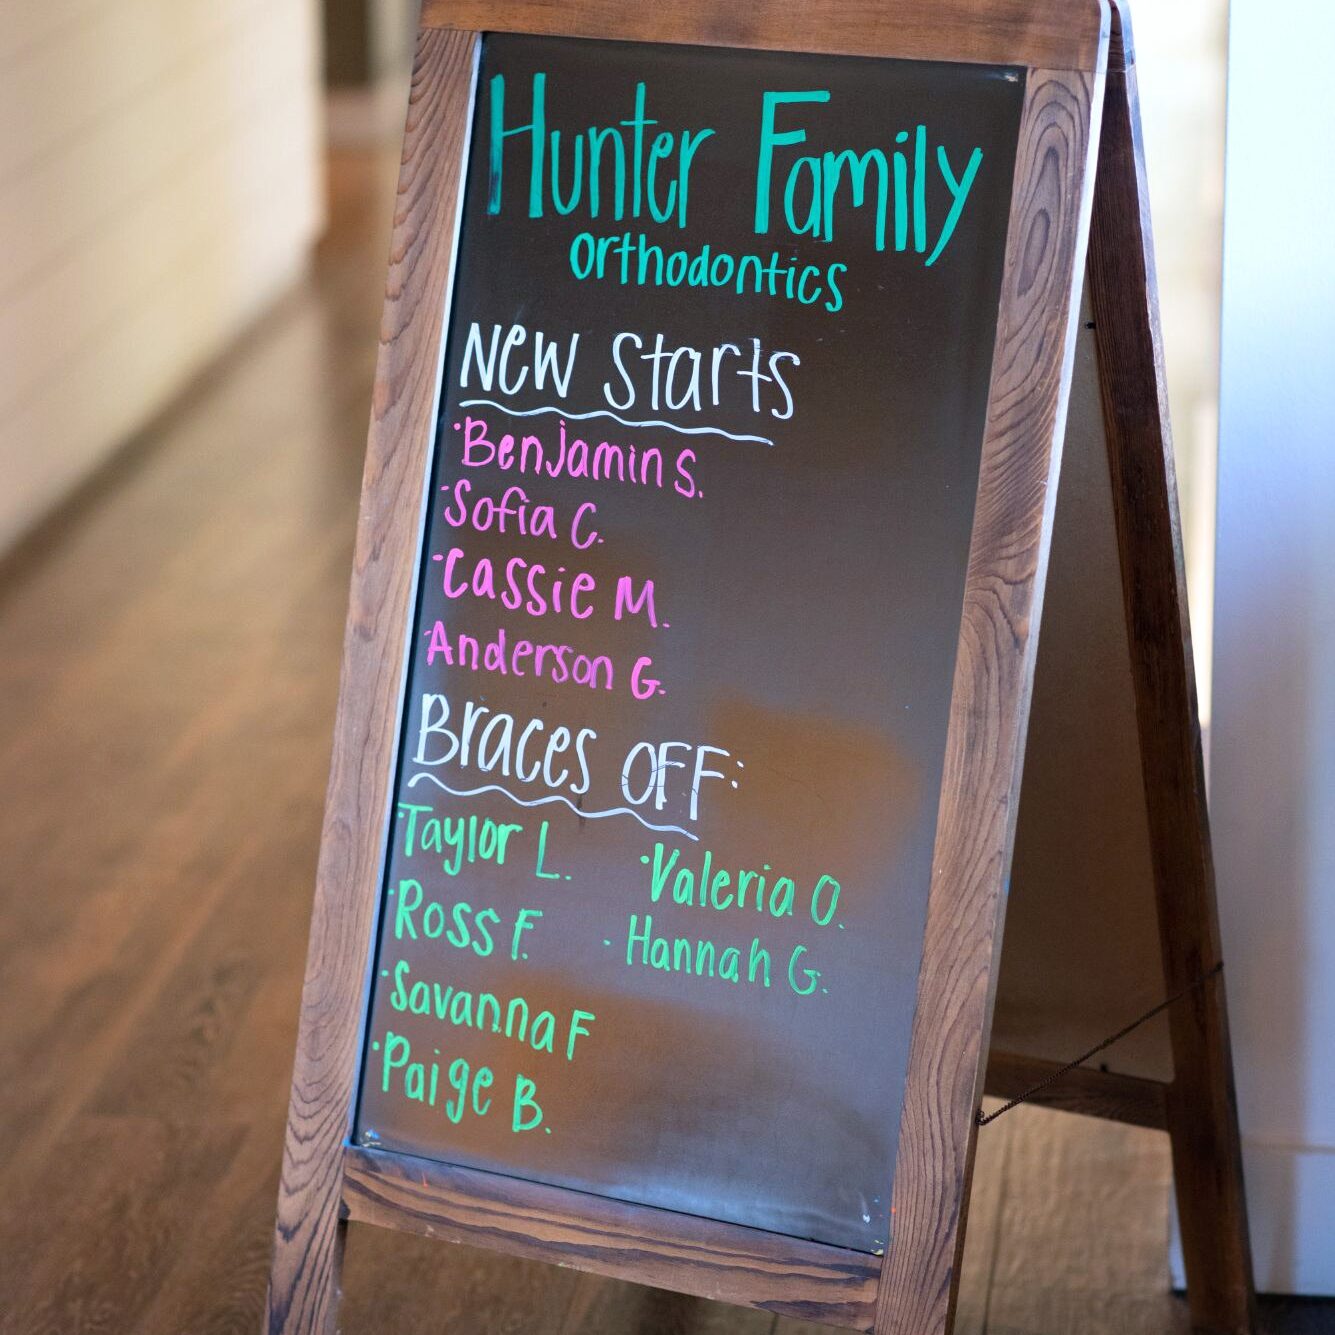 Hunter Family
Orthodontics
New Starts
·Benjamin S.
·Sofia C.
·Cassie M.
·Anderson G.
Braces OFF:
·Taylor L.
·Ross F.
·Savanna F
·Paige B.
·Valeria O.
·Hannah G.